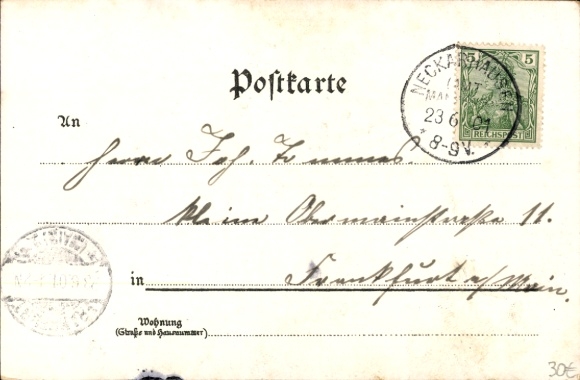 Postkarte
NECKARHAUSEN
23 6 01
8-9V.
5 5
REICHSPOST
An
Herrn Joh.
kleine Obermainstraße 11.
in Frankfurt a/Main.
Wohnung
(Straße und Hausnummer)
30€